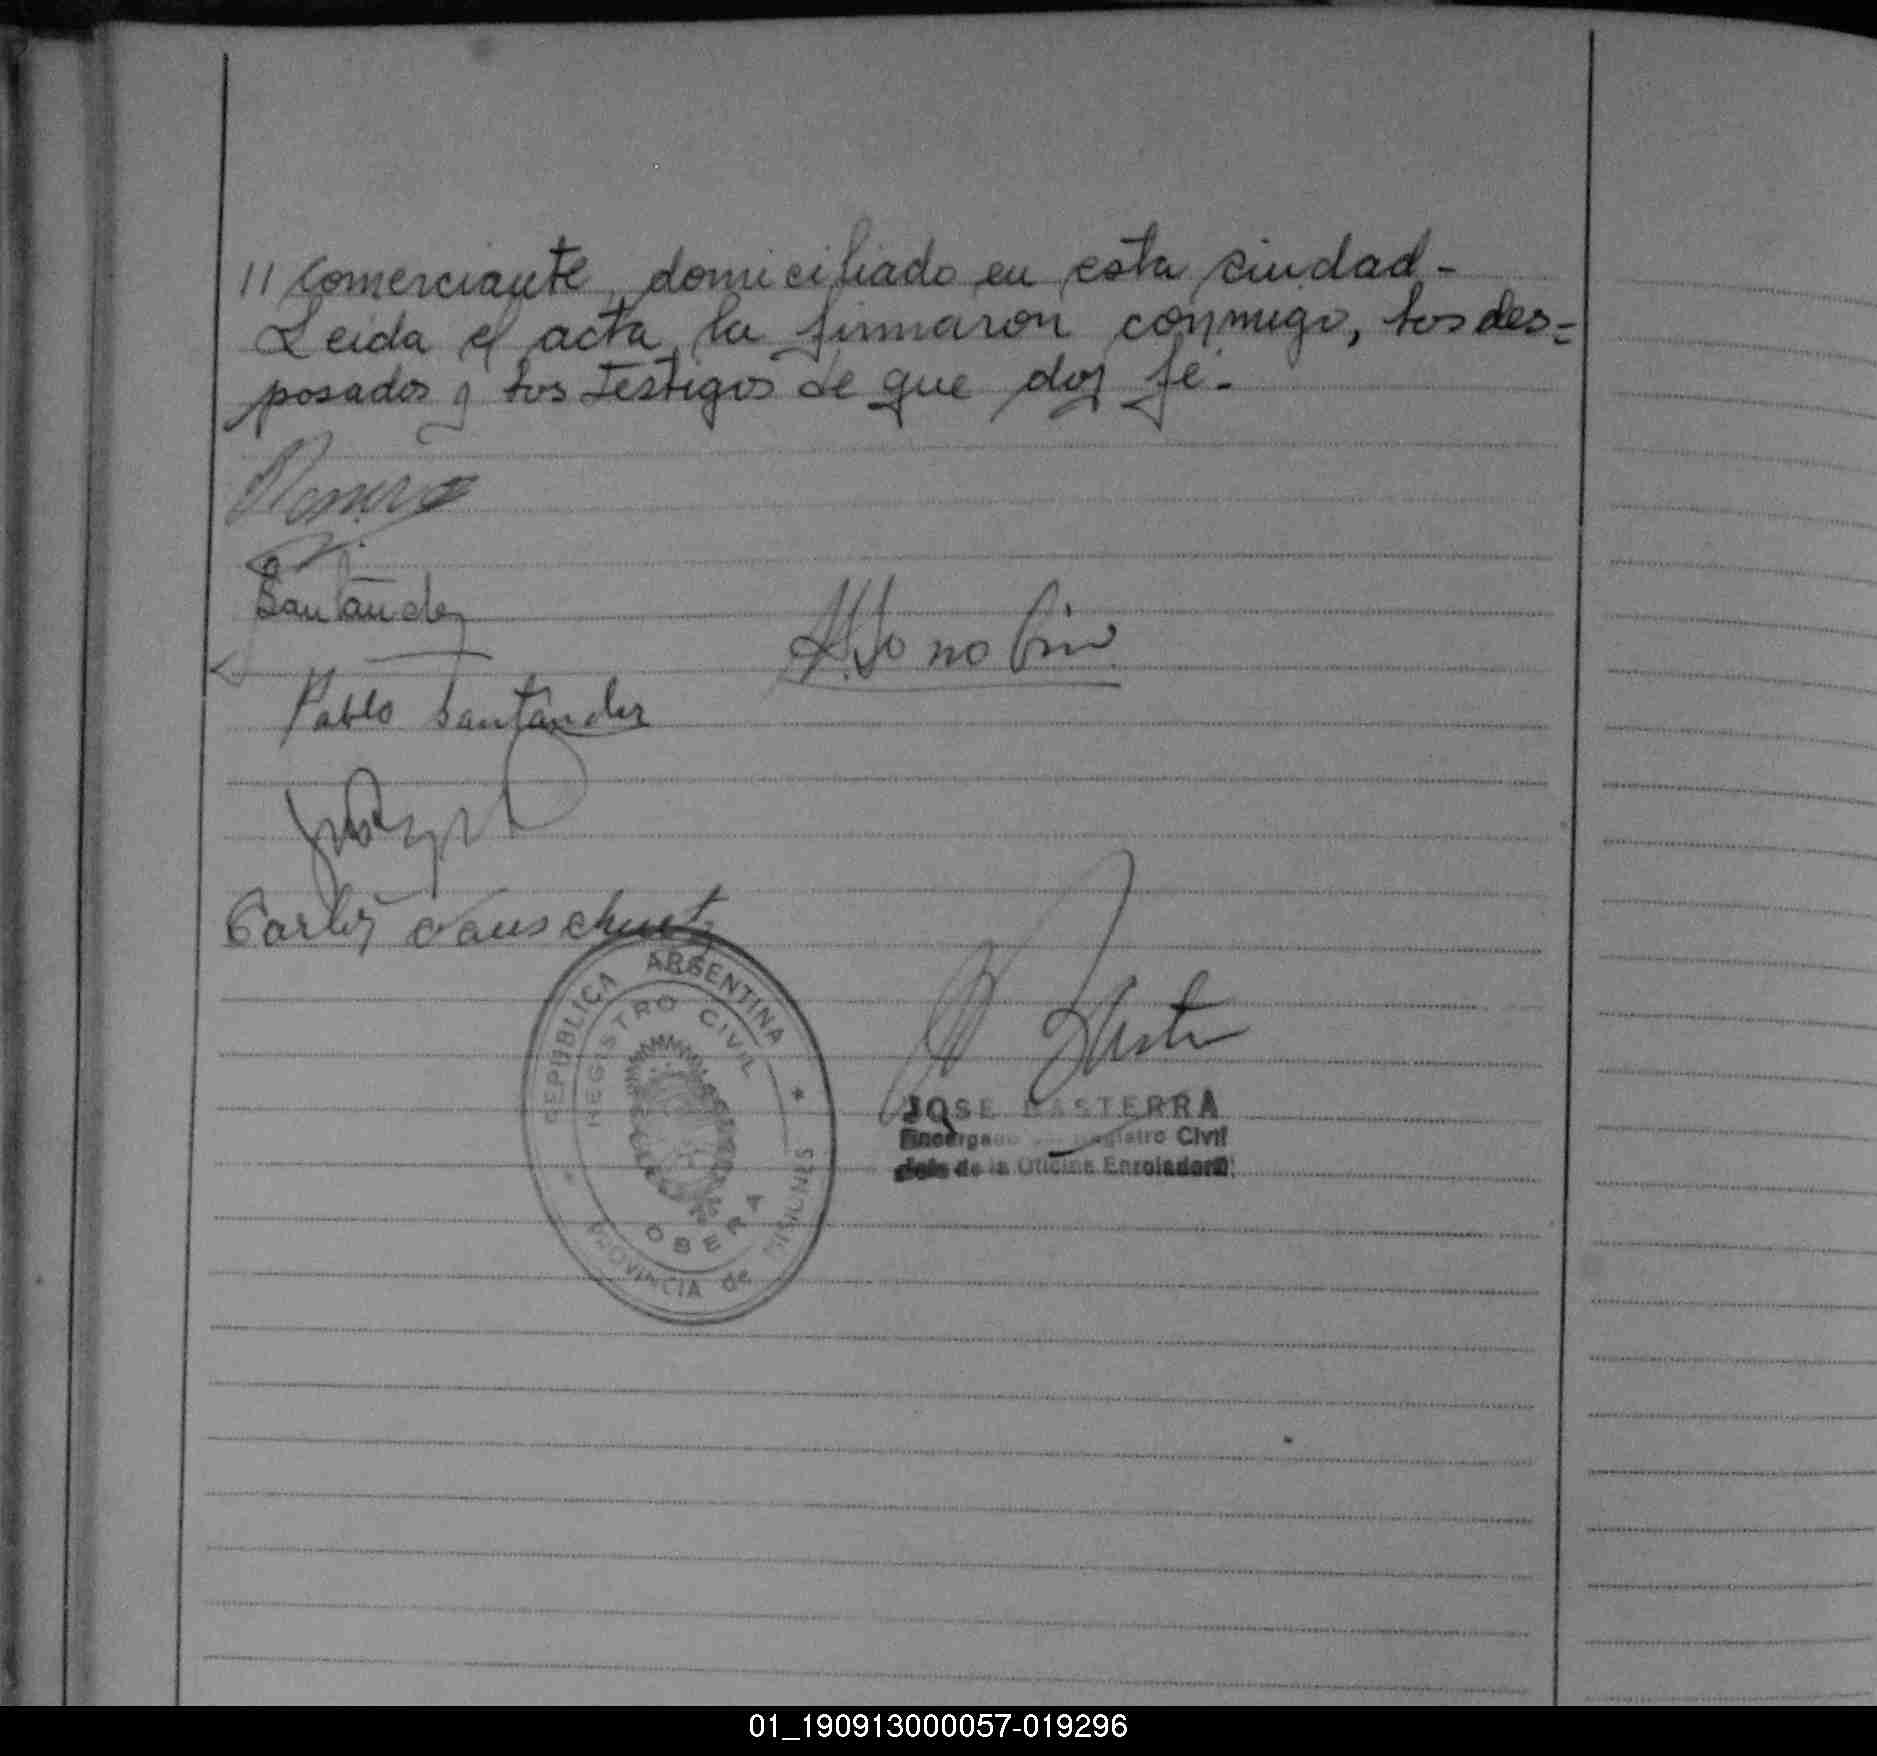 // Comerciante, domiciliado en esta ciudad -
Leida el acta, la firmaron conmigo, los des=
posados y los testigos de que doy fé. -
Santander
Pablo Santander
Carlos
REPUBLICA ARGENTINA
REGISTRO CIVIL
OBERA
PROVINCIA de MISIONES
JOSE BASTERRA
Encargado Registro Civil
Jefe de la Oficina Enroladora
01_190913000057-019296